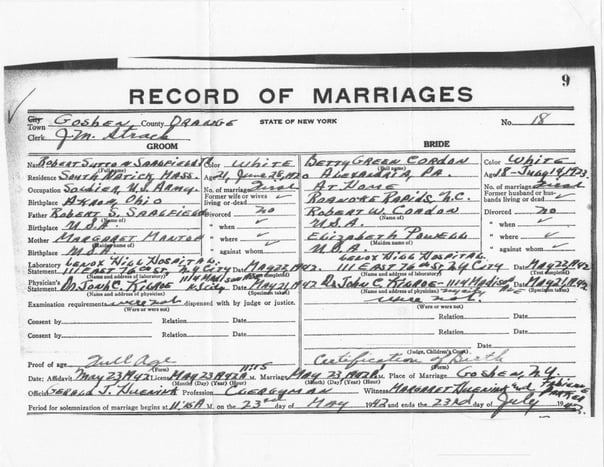 9
RECORD OF MARRIAGES
City
Town Goshen, County Orange STATE OF NEW YORK No. 18
Clerk J.M. Strack
GROOM BRIDE
Name Robert Sutton Color White Betty Green Cordon Color White
(Full name) (Full name)
Residence South Natick Mass. Age 21, June 28, 1920 Pa. Age 18 - July 19, 1923
Occupation Soldier, U.S. Army No. of marriage First At Home No. of marriage First
Birthplace Akron, Ohio Former wife or wives living or dead? ✓ Roanoke Rapids, N.C. Former husband or husbands living or dead ✓
Father Robert S. Divorced no Robert W. Cordon Divorced no
(Name of) (Name of)
Birthplace U.S.A. " when ✓ U.S.A. " when ✓
Mother Margaret " where ✓ Elizabeth Powell " where ✓
(Maiden name of) (Maiden name of)
Birthplace U.S.A. " against whom ✓ U.S.A. " against whom ✓
Laboratory Lenox Hill Hospital Lenox Hill Hospital
Statement 111 East 76th St. N.Y. City Date May 22, 1942 111 East 76th St. N.Y. City Date May 22, 1942
(Name and address of laboratory) (Test completed) (Name and address of laboratory) (Test completed)
Physician's Dr. John C. Date May 21, 1942 Dr. John C. - 1114 Madison Date May 21, 1942
Statement (Name and address of physician) (Specimen taken) (Name and address of physician) (Specimen taken)
Examination requirement were not dispensed with by judge or justice. were not
(Were or were not) (Were or were not)
Consent by Relation Date Relation Date
Consent by Relation Date Relation Date
(Judge, Children's Court)
Proof of age Full Age Certification of Birth
Date; Affidavit May 23, 1942 License May 23, 1942 11:15 A.M. Marriage May 23, 1942 P.M. Place of Marriage Goshen, N.Y.
(Month) (Day) (Year) (Hour) (Month) (Day) (Year) (Hour)
Official Gerald J. Profession Clergyman Witnesses Margaret and
Period for solemnization of marriage begins at 11:15 A. M. on the 23rd day of May 1942 and ends the 23rd day of July 1942